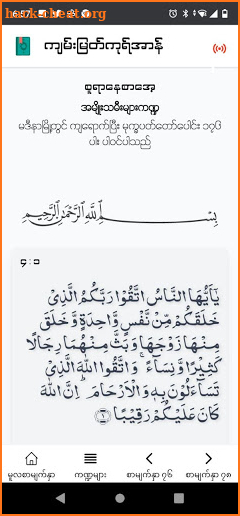 6:57
ကျမ်းမြတ်ကုရ်အာန်
စူရာနေတာအေ့
အမျိုးသမီးများကဏ္ဍ
မဒီနာမြို့တွင် ကျရောက်ပြီး မုက္ခပတ်တော်ပေါင်း ၁၇၆
ပါး ပါဝင်ပါသည်
بِسْمِ اللَّهِ الرَّحْمَٰنِ الرَّحِيمِ
၄:၁
يَٰٓأَيُّهَا النَّاسُ اتَّقُوا رَبَّكُمُ الَّذِي
خَلَقَكُم مِّن نَّفْسٍ وَٰحِدَةٍ وَخَلَقَ
مِنْهَا زَوْجَهَا وَبَثَّ مِنْهُمَا رِجَالًا
كَثِيرًا وَنِسَآءً ۚ وَاتَّقُوا اللَّهَ الَّذِي
تَسَآءَلُونَ بِهِۦ وَالْأَرْحَامَ ۚ إِنَّ اللَّهَ
كَانَ عَلَيْكُمْ رَقِيبًا ١
မူလစာမျက်နှာ
ကဏ္ဍများ
စာမျက်နှာ ၇၆
စာမျက်နှာ ၇၈